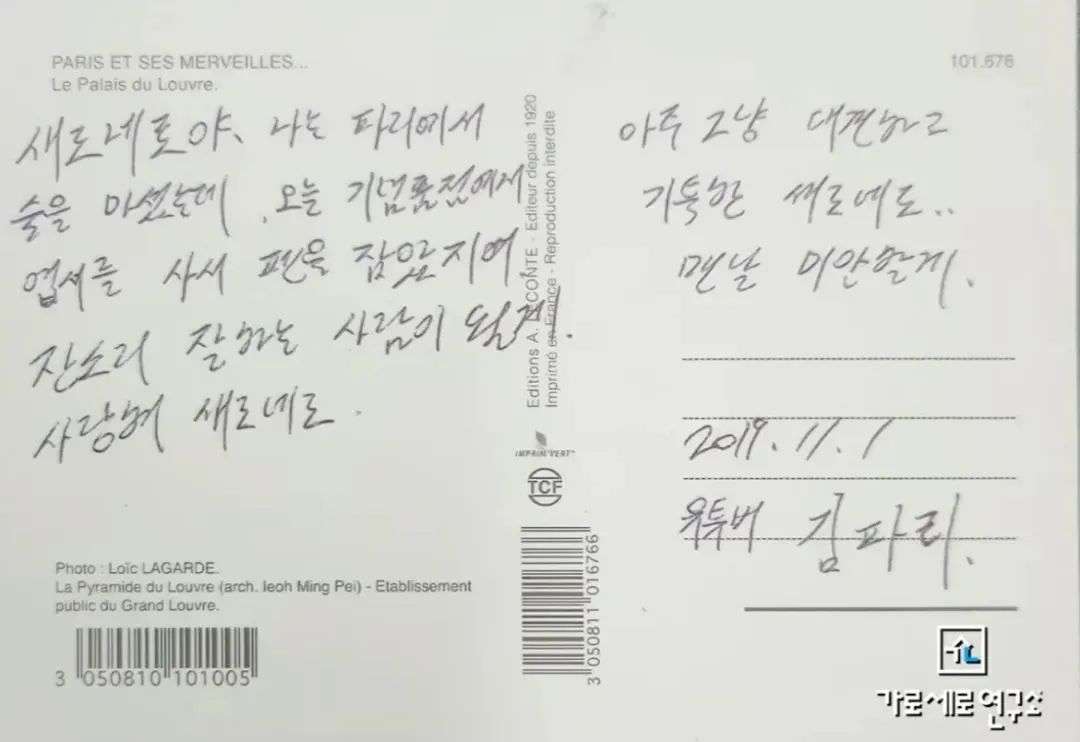 PARIS ET SES MERVEILLES...
Le Palais du Louvre.
101.678
새로네로야, 나는 파리에서
술을 마셨는데, 오는 기념품점에서
엽서를 사서 펜을 잡았지여.
잔소리 잘하는 사람이 될게.
사랑해 새로네로.
아주 그냥 대견하고
기특한 새로네로..
맨날 미안할게.
2019.11.1
유투버 김파리.
Editions A. LECONTE - Editeur depuis 1920
Imprimé en France - Reproduction interdite
IMPRIM'VERT
TCF
3 050811 016766
Photo : Loïc LAGARDE.
La Pyramide du Louvre (arch. Ieoh Ming Pei) - Etablissement
public du Grand Louvre.
3 050810 101005
가로세로연구소